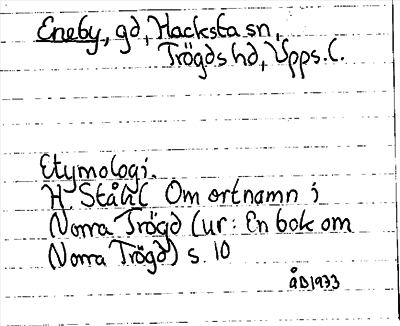 Eneby, gd, Hacksta sn,
Trögds hd, Upps. l.
Etymologi.
H. Ståhl Om ortnamn i
Norra Trögd (ur: En bok om
Norra Trögd) s. 10
ÅD 1973